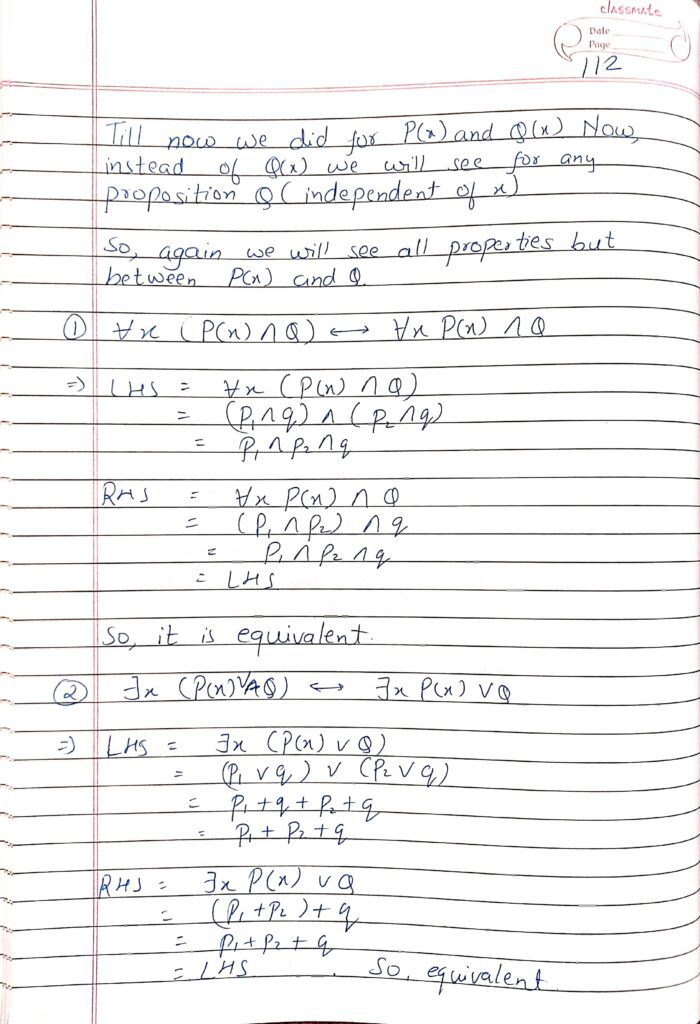 classmate
Date
Page
112
Till now we did for P(x) and Q(x) Now,
instead of Q(x) we will see for any
proposition Q (independent of x)
So, again we will see all properties but
between P(x) and Q.
① ∀x (P(x) ∧ Q) ⟷ ∀x P(x) ∧ Q
⇒ LHS = ∀x (P(x) ∧ Q)
= (P₁ ∧ q) ∧ (P₂ ∧ q)
= P₁ ∧ P₂ ∧ q
RHS = ∀x P(x) ∧ Q
= (P₁ ∧ P₂) ∧ q
= P₁ ∧ P₂ ∧ q
= LHS
So, it is equivalent.
② ∃x (P(x) ∨ Q) ⟷ ∃x P(x) ∨ Q
⇒ LHS = ∃x (P(x) ∨ Q)
= (P₁ ∨ q) ∨ (P₂ ∨ q)
= P₁ + q + P₂ + q
= P₁ + P₂ + q
RHS = ∃x P(x) ∨ Q
= (P₁ + P₂) + q
= P₁ + P₂ + q
= LHS. So, equivalent